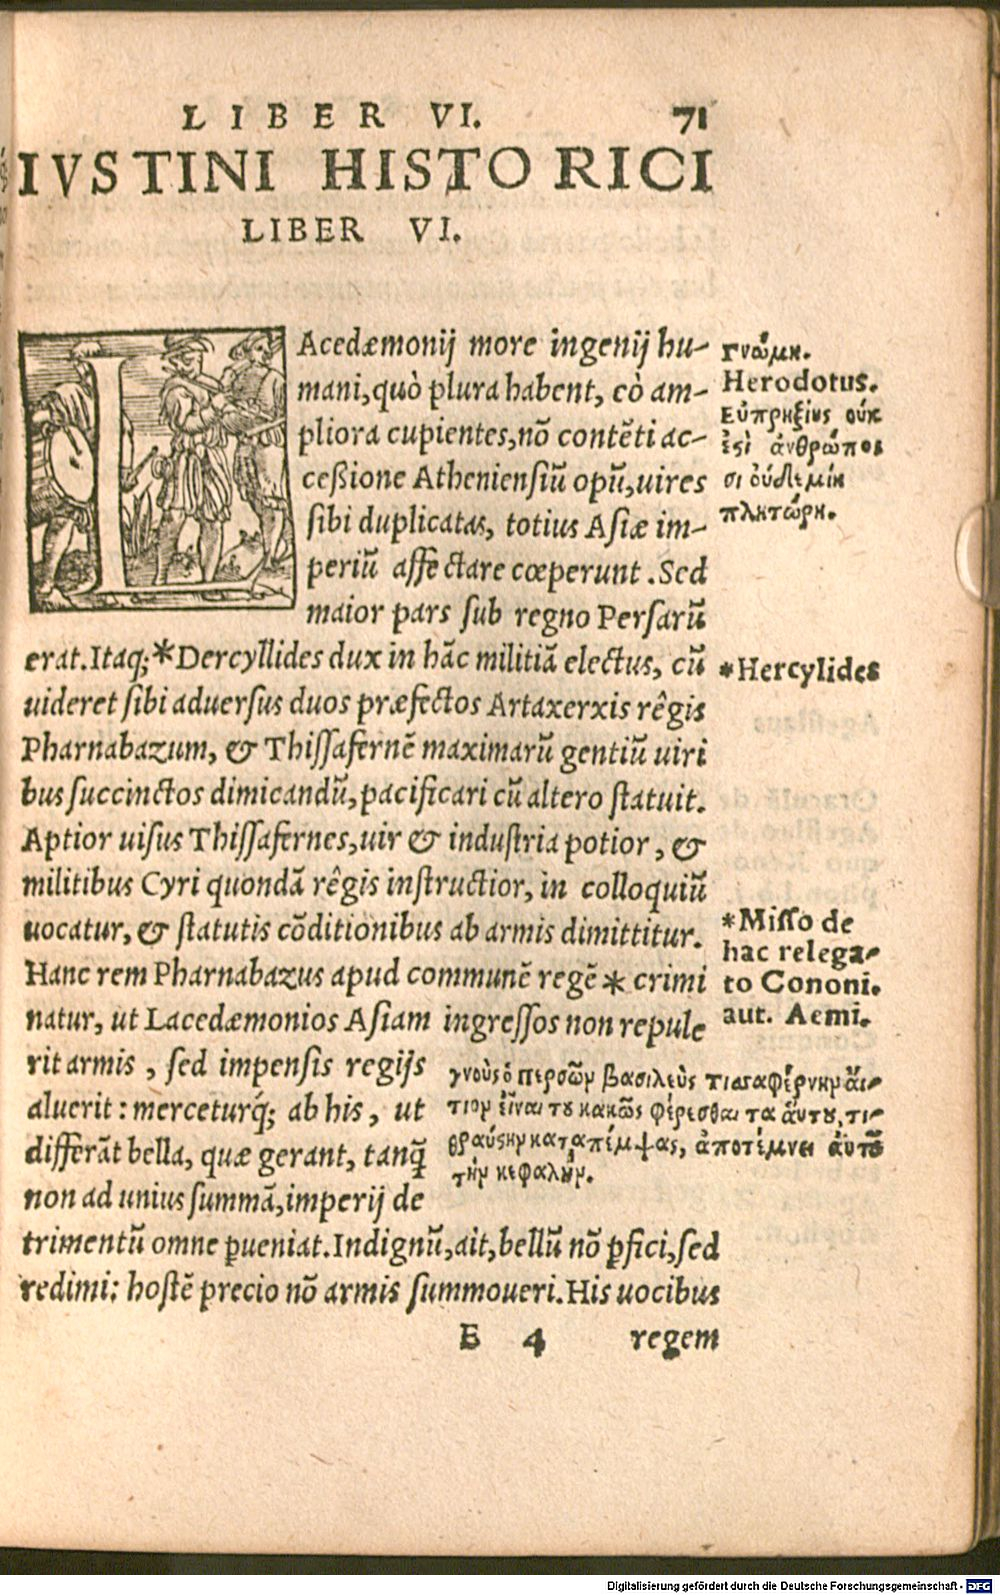 LIBER VI. 71
IVSTINI HISTORICI
LIBER VI.
LAcedæmonij more ingenij hu-
mani, quò plura habent, eò am-
pliora cupientes, nō contēti ac-
ceßione Atheniensiū opū, uires
sibi duplicatas, totius Asiæ im-
periū affectare cœperunt. Sed
maior pars sub regno Persarū
erat. Itaq; *Dercyllides dux in hāc militiā electus, cū
uideret sibi aduersus duos præfectos Artaxerxis rêgis
Pharnabazum, & Thissafernē maximarū gentiū uiri
bus succinctos dimicandū, pacificari cū altero statuit.
Aptior uisus Thissafernes, uir & industria potior, &
militibus Cyri quondā rêgis instructior, in colloquiū
uocatur, & statutis cōditionibus ab armis dimittitur.
Hanc rem Pharnabazus apud communē regē * crimi
natur, ut Lacedæmonios Asiam ingressos non repule
rit armis, sed impensis regijs
aluerit: merceturq́; ab his, ut
differāt bella, quæ gerant, tanq̄
non ad unius summā, imperij de
trimentū omne ꝑueniat. Indignū, ait, bellū nō ꝑfici, sed
redimi: hostē precio nō armis summoueri. His uocibus
E 4 regem
Γνώμη.
Herodotus.
Εὐπρηξίης οὐκ
ἔστι ἀνθρώποι
σι οὐδεμίη
πληθώρη.
*Hercylides
*Misso de
hac relega-
to Cononi.
aut. Aemi.
γνοὺς ὁ περσῶν βασιλεὺς τισσαφέρνην αἴ-
τιον εἶναι του κακῶς φέρεσθαι τα αὑτου, τι-
θραύστην καταπέμψας, ἀποτέμνει αὐτοῦ
τὴν κεφαλήν.
Digitalisierung gefördert durch die Deutsche Forschungsgemeinschaft - DFG